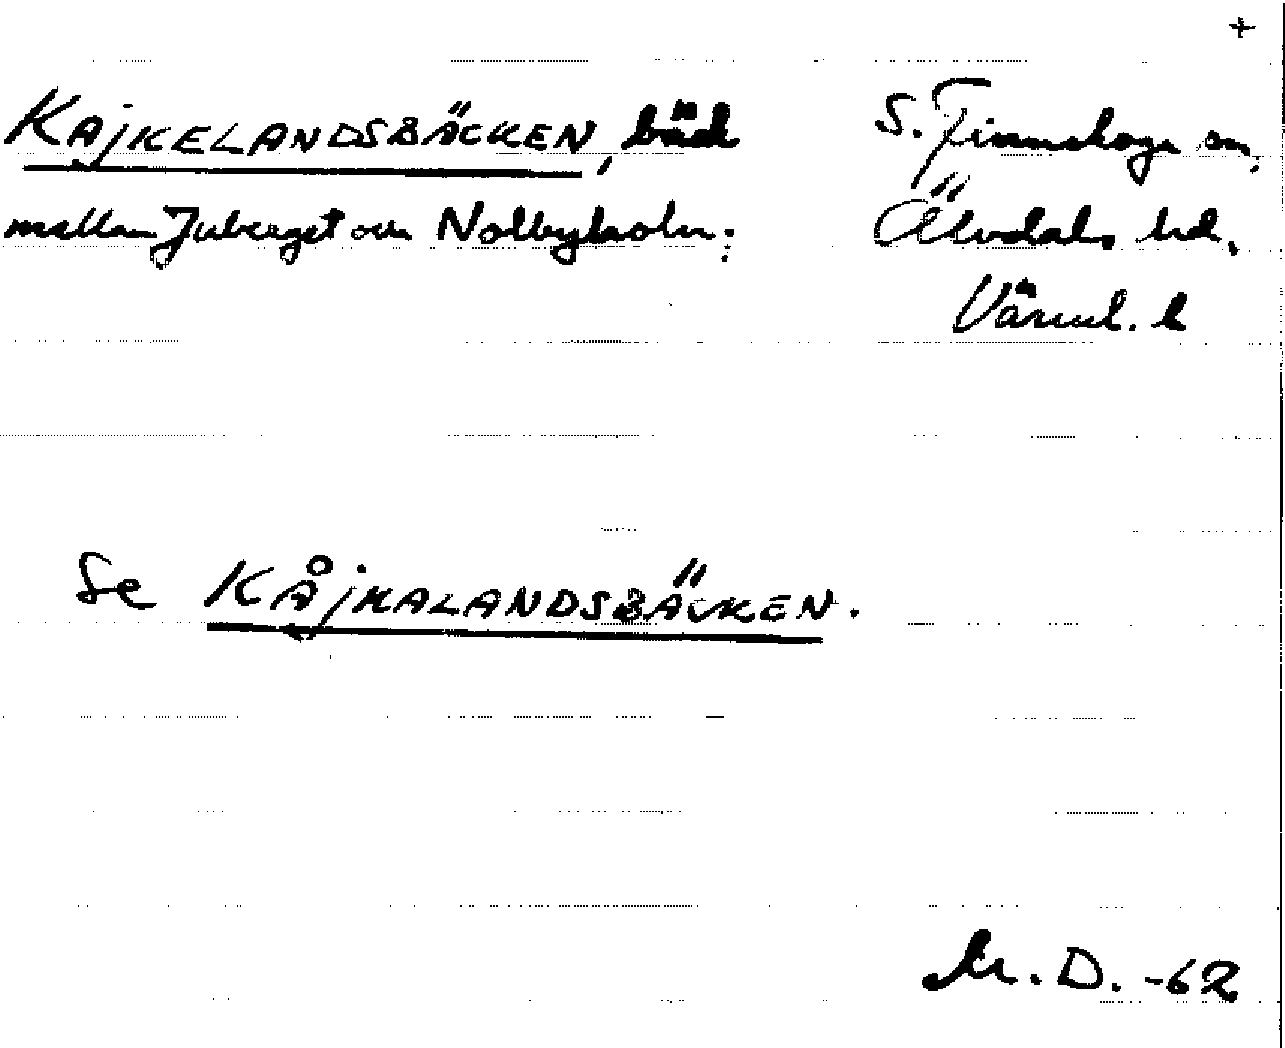 +
KAJKELANDSBÄCKEN, bäck
S. Finnskoga sn,
mellan Juberget och Nolbyholn:
Älvdals hd,
Värml. l
Se KÅJKALANDSBÄCKEN.
D. -62